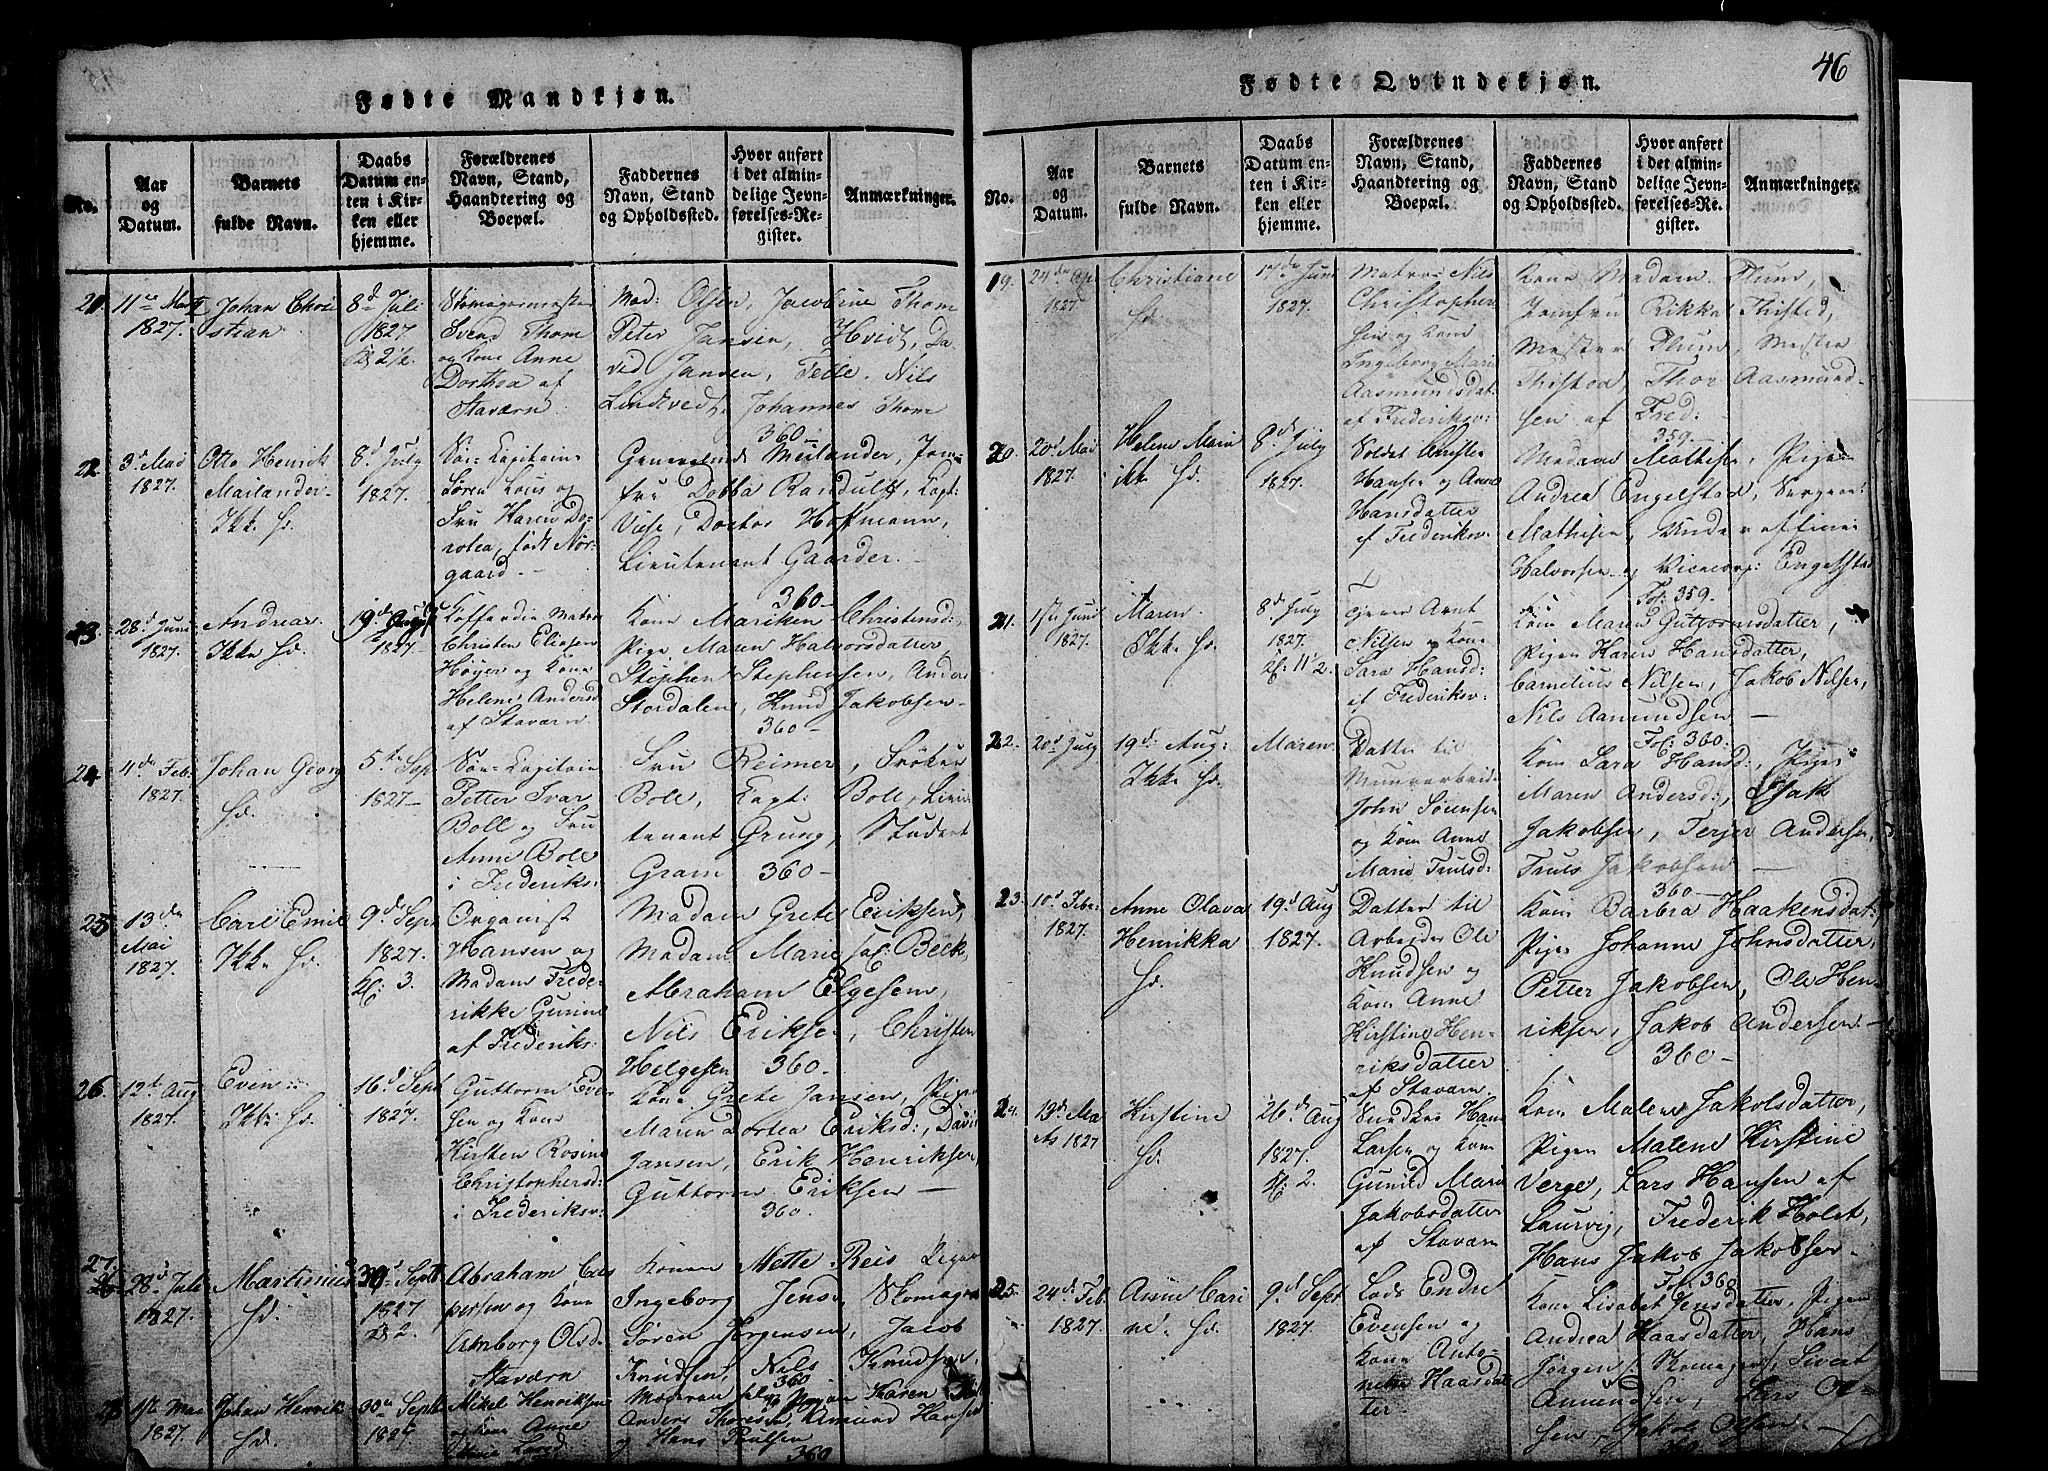 46
Fødte Mandkjøn.
No.
Aar
og
Datum.
Barnets
fulde Navn.
Daabs
Datum en-
ten i Kir-
ken eller
hjemme.
Forældrenes
Navn, Stand,
Haandtering og
Boepæl.
Faddernes
Navn, Stand
og Opholdssted.
Hvor anført
i det almin-
delige Jevn-
førelses-Re-
gister.
Anmærkninger.
21. 11te
1827.
Johan Chri
stian
8d Juli
1827
Kl 2½.
Skomagermester
Svend Thom
og Kone Anne
Dorthea af
Staværn
Mad: Olsen, Jacobine Thom
Peter Jansen, Hvid, Da
vid Jansen, Nils
Lindtvedt, Johannes Thom
360-
22. 3d Mai
1827.
Otto Henrik
Mailander.
Ikke Hd.
8d July
1827.
Søe-Capitain
Søren Lous og
Fru Karen Do-
rotea, født Nør-
gaard.
Meilander, Jom-
fru Dobba Randulff, Capt:
Doctor Hoffmann,
Lieutenant Gaarder.
360-
23. 28d Juni
1827.
Andreas
Ikke Hd.
19d Aug
1827-
Koffardie Matros
Christen Eliasen
Høyer og Kone
Helene Andersd
af Staværn
Kone Mariken Christensd:,
Pige Maren Halvorsdatter,
Stephen Stephensen, Anders
Stordalen, Knud Jakobsen-
360-
24. 4de Feb.
1827.
Johan Georg
Hd.
5te Sep
1827-
Søe-Capitain
Petter Ivar
Boll og Fru
Anne Boll
i Frederiks:
Fru Reimer, Frøken
Boll, Capt: Boll, Lieu
tenant Grung, Student
Gram 360-
25. 13de
Mai
1827.
Carl Emil
Ikke Hd.
9de Sept
1827.
Kl: 3.
Organist
Hansen og
Madam Frede-
rikke Gurine
af Frederiks:
Madam Grete Eriksen,
Madam Marie Sal: Beck,
Abraham Elgesen,
Nils Eriksen, Christen
Helgesen 360-
26. 12t Aug
1827.
Even
Ikke Hd.
16d Sept
1827.
Guttorm Even
sen og Kone
Kirsten Rosine
Christophersd:
i Frederiksv:
Kone Grete Jansen, Pigen
Maren Dortea Eriksd:, David
Jansen, Erik Henriksen,
Guttorm Eriksen-
360.
27. 28d Juli
1827.
Martinius
Hd.
30d Sept
1827
Kl 2.
Abraham Cas
persen og Kone
Amborg Olsd
Staværn
Konen Mette Reis Pigen
Ingeborg Jens, Skomager
Søren Jørgensen, Jacob
Knudsen, Nils Knudsen.
360
28
1827.
Johan Henrik
Hd.
30te Sept
1827
Mikel Henriksen
og Kone Anne
Karen
Anders Thoresen, Amund Hansen
og Hans Paulsen
360
Fødte Qvindekjøn.
No.
Aar
og
Datum.
Barnets
fulde Navn.
Daabs
Datum en-
ten i Kir-
ken eller
hjemme.
Forældrenes
Navn, Stand,
Haandtering og
Boepæl.
Faddernes
Navn, Stand
og Opholdssted.
Hvor anført
i det almin-
delige Jevn-
førelses-Re-
gister.
Anmærkninger.
19. 24de Apr
1827.
Christiane
Hd.
17de Juni
1827.
Matros Nils
Christopher
sen og Kone
Ingeborg Marie
Aasmundsdat:
af Frederiksv:
Kone Madam Thun,
Jomfru Rikke Thisted,
Mester Thun, Mester
Thisted, Thor Aasmund-
sen af Fred:
359-
20. 20d Mai
1827.
Helene Marie
ikke Hd.
8de July
1827.
Soldat Christen
Hansen og Anne
Hansdatter
af Frederiksv:
Madam Mathisen, Pigen
Andrea Engelstad, Sergeant
Mathisen, Underofficier
Halvorsen og Vicecorp: Engelstad
Fol: 359.
21. 1ste Juni
1827.
Maren
Ikke Hd.
8d July
1827.
Kl: 11½.
Arnt
Nilsen og Kone
Sara Hansd:
af Frederiksv:
Kone Maren Guttormsdatter,
Pigen Karen Hansdatter,
Cornelius Nilsen, Jakob Nilsen,
Nils Aamundsen-
Fol: 360:
22. 20d July
19d Aug:
Ikke Hd.
Maren
Datter til
John Sørensen
og Kone Anne
Marie Trulsd:
Kone Sara Hansd:, Pige
Maren Andersd:, Isak
Jakobsen, Terjer Andersen,
Truls Jakobsen-
360-
23. 10d Feb:
1827.
Anne Olava
Henrikka
Hd.
19d Aug
1827.
Datter til
Arbeider Ole
Knudsen og
Kone Anne
Kirstine Hen-
riksdatter
af Staværn
Kone Barbra Haakensdat:,
Pigen Johanne Johnsdatter,
Petter Jakobsen, Ole Hen-
riksen, Jakob Andersen.-
360-
24. 13d
1827
Kirstine
Hd.
26de Aug
1827.
Kl: 2.
Hans
Larsen og Kone
Gunild Marie
Jakobsdatter
af Staværn
Kone Malene Jakobsdatter,
Pigen Malene Kirstine
Verge, Lars Hansen af
Laurvig, Frederik Holst,
Hans Jakob Jakobsen-
Fol: 360
25. 24d Feb
1827.
Anne Cari
ne. Hd.
9d Sept
1827.
Lods Endre
Evensen og
Kone Anto-
nette Haasdat
ter.
Kone Lisabet Jensdatter, Pigen
Andrea Haasdatter, Hans
Jørgen Skomager, Sivert
Amundsen, Lars Ol-
sen, Jakob Olsen-